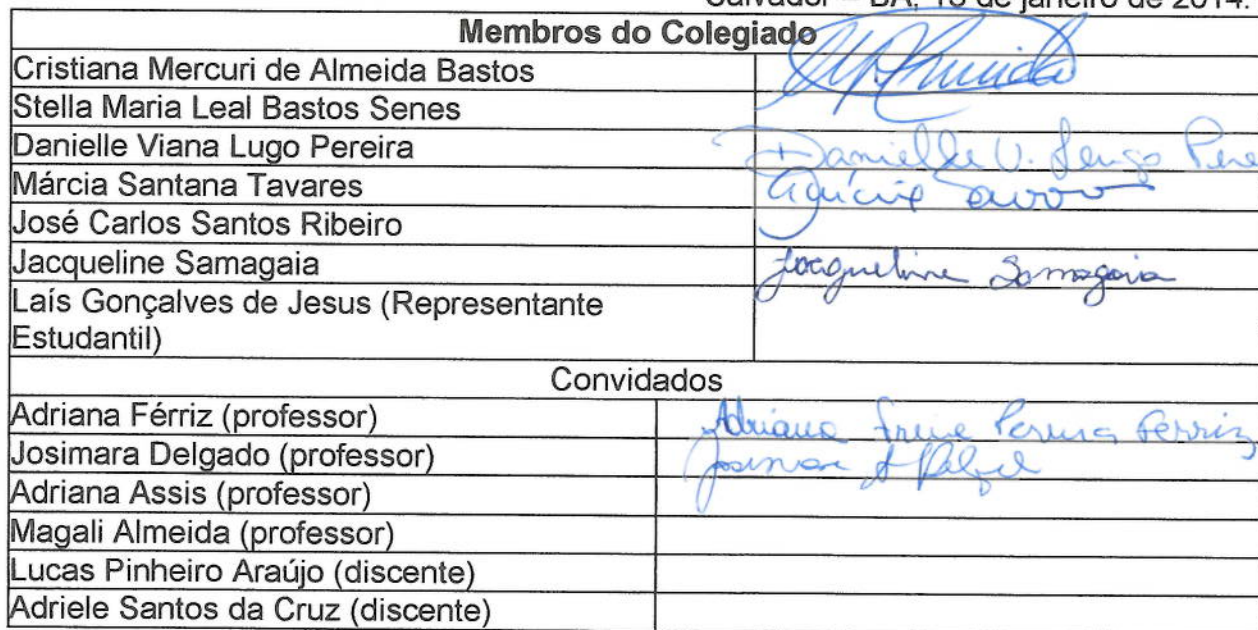 Salvador – BA, 13 de janeiro de 2014.
Membros do Colegiado
Cristiana Mercuri de Almeida Bastos
Stella Maria Leal Bastos Senes
Danielle Viana Lugo Pereira Danielle V. Lugo Pere
Márcia Santana Tavares
José Carlos Santos Ribeiro
Jacqueline Samagaia Jacqueline Samagaia
Laís Gonçalves de Jesus (Representante
Estudantil)
Convidados
Adriana Férriz (professor) Adriana Freire Pereira Ferriz
Josimara Delgado (professor)
Adriana Assis (professor)
Magali Almeida (professor)
Lucas Pinheiro Araújo (discente)
Adriele Santos da Cruz (discente)